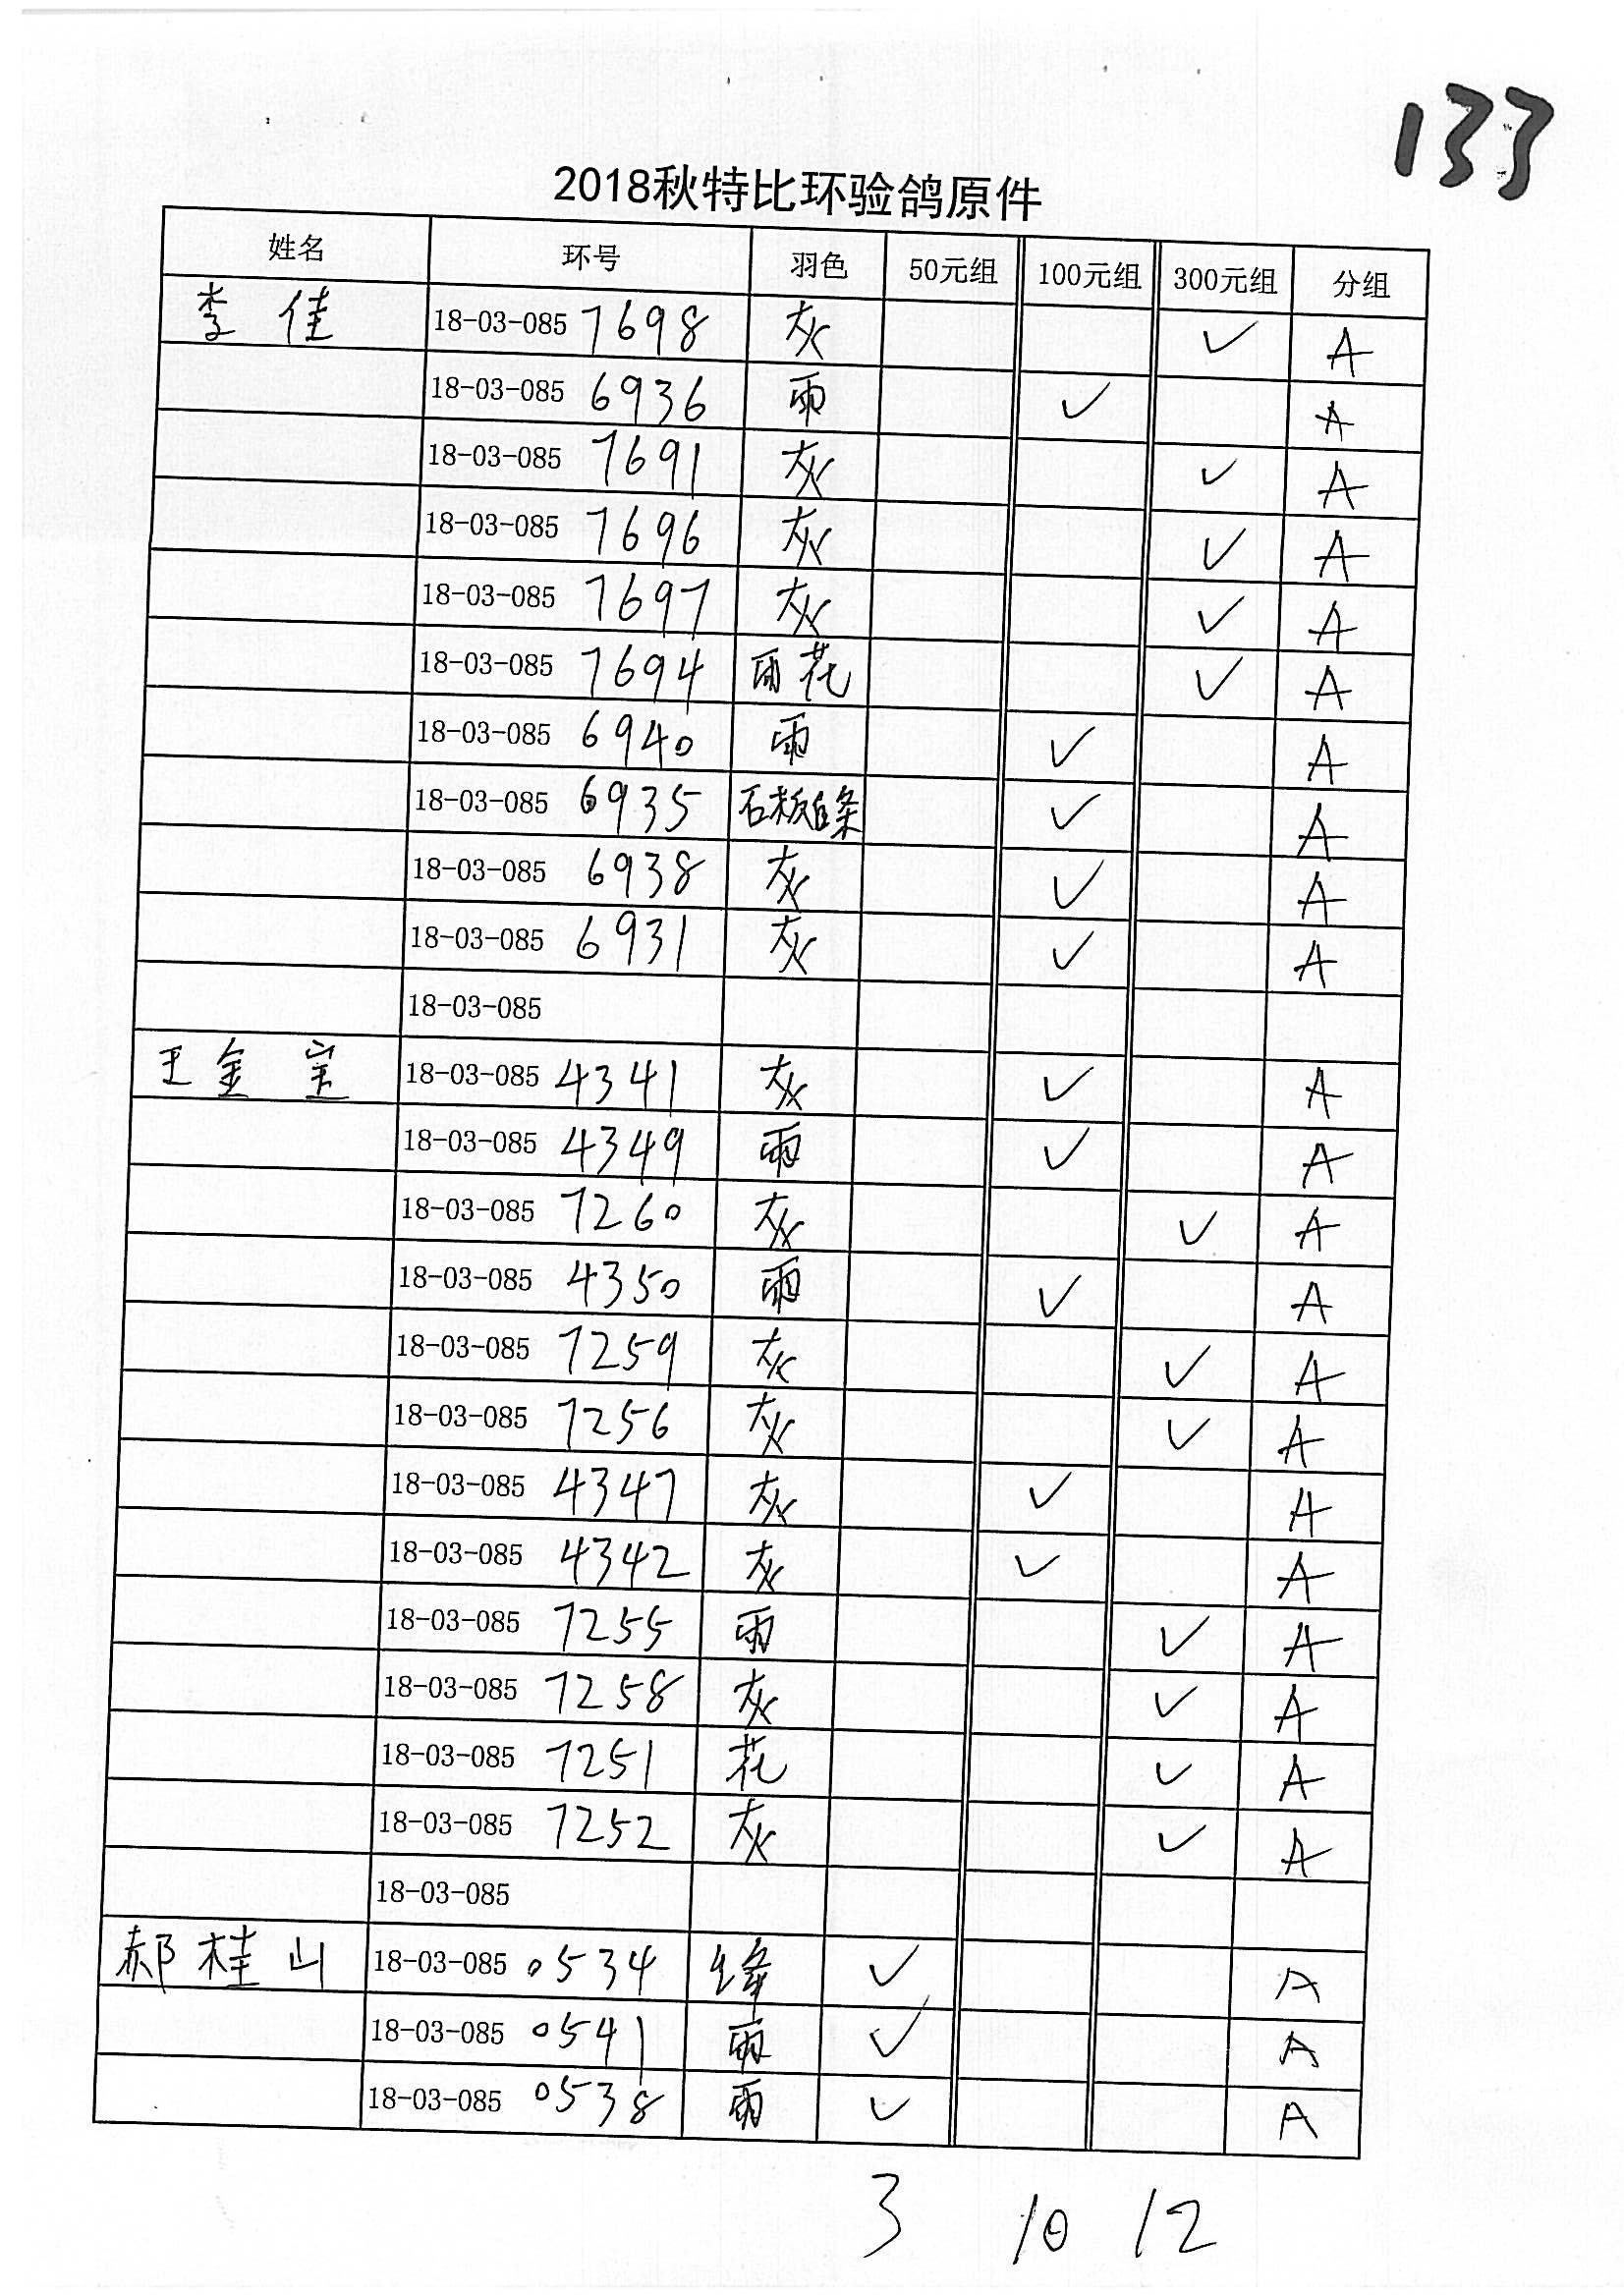 133
2018秋特比环验鸽原件
姓名 环号 羽色 50元组 100元组 300元组 分组
李佳 18-03-085 7698 灰 ✓ A
18-03-085 6936 雨 ✓ A
18-03-085 7691 灰 ✓ A
18-03-085 7696 灰 ✓ A
18-03-085 7697 灰 ✓ A
18-03-085 7694 雨花 ✓ A
18-03-085 6940 雨 ✓ A
18-03-085 6935 石板白条 ✓ A
18-03-085 6938 灰 ✓ A
18-03-085 6931 灰 ✓ A
18-03-085
王金宝 18-03-085 4341 灰 ✓ A
18-03-085 4349 雨 ✓ A
18-03-085 7260 灰 ✓ A
18-03-085 4350 雨 ✓ A
18-03-085 7259 灰 ✓ A
18-03-085 7256 灰 ✓ A
18-03-085 4347 灰 ✓ A
18-03-085 4342 灰 ✓ A
18-03-085 7255 雨 ✓ A
18-03-085 7258 灰 ✓ A
18-03-085 7251 花 ✓ A
18-03-085 7252 灰 ✓ A
18-03-085
郝桂山 18-03-085 0534 绛 ✓ A
18-03-085 0541 雨 ✓ A
18-03-085 0538 雨 ✓ A
3 10 12